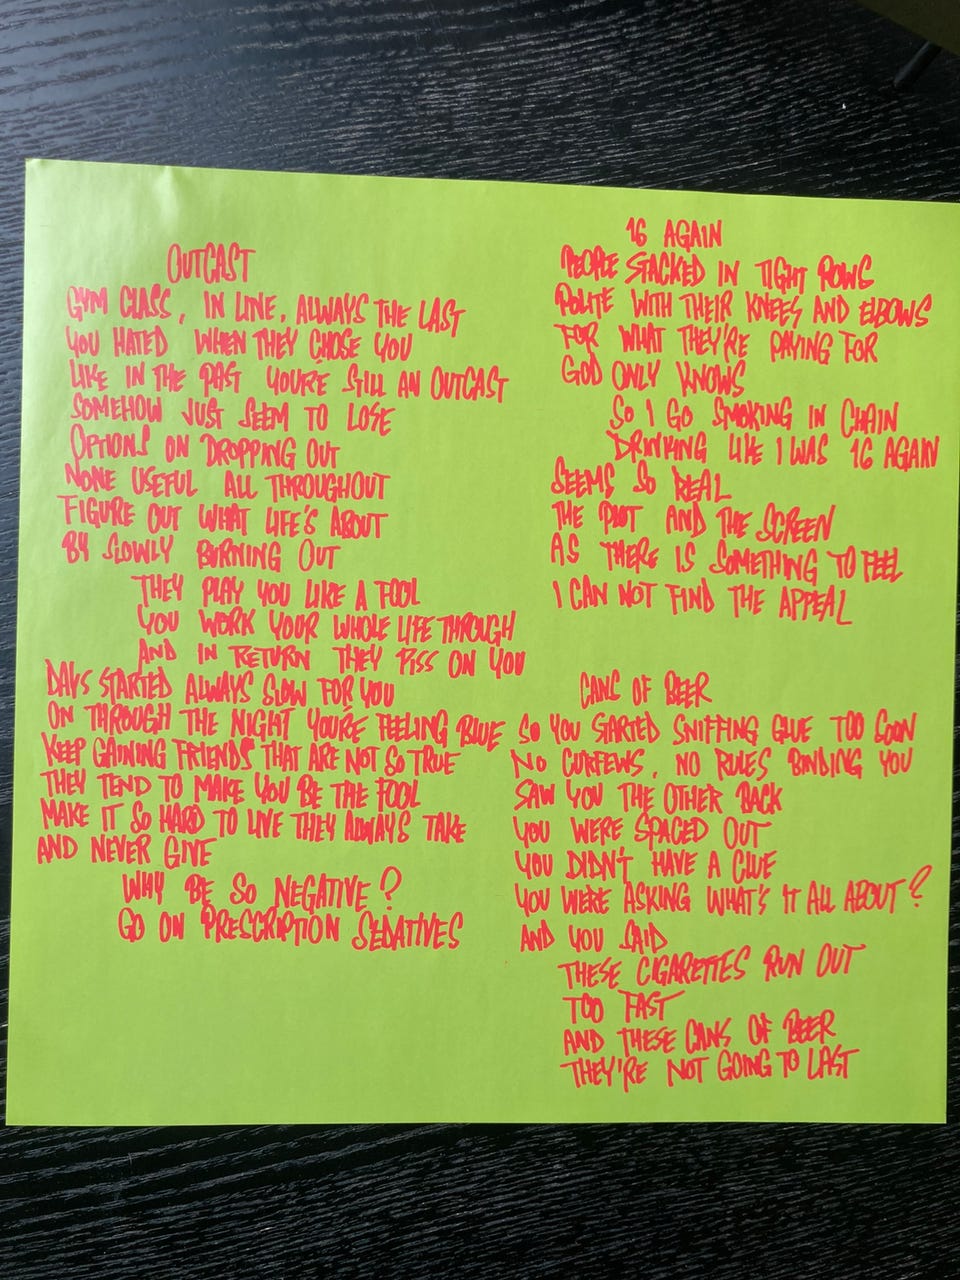 OUTCAST
GYM CLASS, IN LINE, ALWAYS THE LAST
YOU HATED WHEN THEY CHOSE YOU
LIKE IN THE PAST YOU'RE STILL AN OUTCAST
SOMEHOW JUST SEEM TO LOSE
OPTIONS ON DROPPING OUT
NONE USEFUL ALL THROUGHOUT
FIGURE OUT WHAT LIFE'S ABOUT
BY SLOWLY BURNING OUT
THEY PLAY YOU LIKE A FOOL
YOU WORK YOUR WHOLE LIFE THROUGH
AND IN RETURN THEY PISS ON YOU
DAYS STARTED ALWAYS SLOW FOR YOU
ON THROUGH THE NIGHT YOU'RE FEELING BLUE
KEEP GAINING FRIENDS THAT ARE NOT SO TRUE
THEY TEND TO MAKE YOU BE THE FOOL
MAKE IT SO HARD TO LIVE THEY ALWAYS TAKE
AND NEVER GIVE
WHY BE SO NEGATIVE?
GO ON PRESCRIPTION SEDATIVES
16 AGAIN
PEOPLE STACKED IN TIGHT ROWS
POLITE WITH THEIR KNEES AND ELBOWS
FOR WHAT THEY'RE PAYING FOR
GOD ONLY KNOWS
SO I GO SMOKING IN CHAIN
DRINKING LIKE I WAS 16 AGAIN
SEEMS SO REAL
THE PLOT AND THE SCREEN
AS THERE IS SOMETHING TO FEEL
I CAN NOT FIND THE APPEAL
CANS OF BEER
SO YOU STARTED SNIFFING GLUE TOO SOON
NO CURFEWS, NO RULES BINDING YOU
SAW YOU THE OTHER BACK
YOU WERE SPACED OUT
YOU DIDN'T HAVE A CLUE
YOU WERE ASKING WHAT'S IT ALL ABOUT?
AND YOU SAID
THESE CIGARETTES RUN OUT
TOO FAST
AND THESE CANS OF BEER
THEY'RE NOT GOING TO LAST